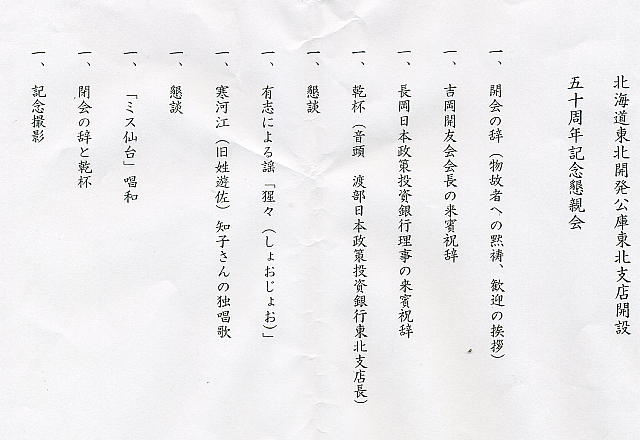 北海道東北開発公庫東北支店開設
五十周年記念懇親会
一、開会の辞（物故者への黙祷、歓迎の挨拶）
一、吉岡開友会会長の来賓祝辞
一、長岡日本政策投資銀行理事の来賓祝辞
一、乾杯（音頭　渡部日本政策投資銀行東北支店長）
一、懇談
一、有志による謡「猩々（しょおじょお）」
一、寒河江（旧姓遊佐）知子さんの独唱歌
一、懇談
一、「ミス仙台」唱和
一、閉会の辞と乾杯
一、記念撮影